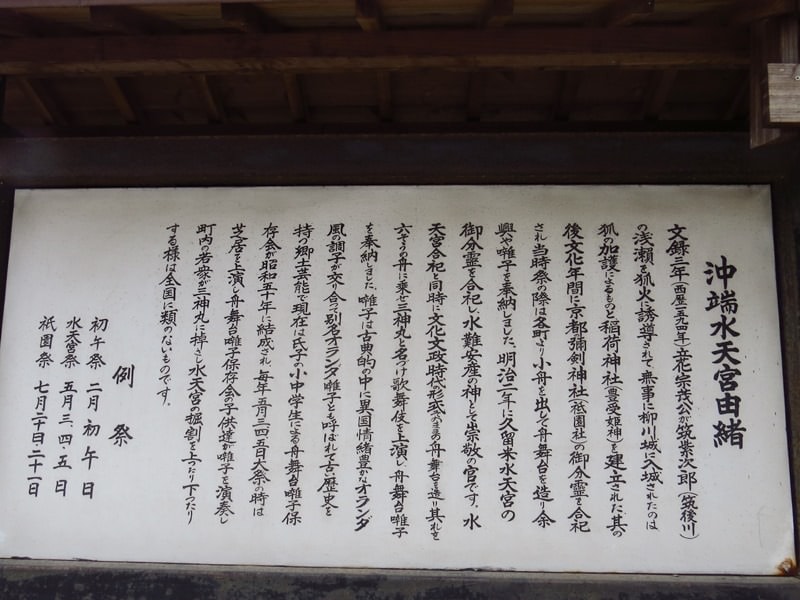 沖端水天宮由緒
文録三年(西歴一五九四年)立花宗茂公が筑紫次郎(筑後川)
の浅瀬を狐火に誘導されて無事に柳川城に入城されたのは
狐の加護によるものと稲荷神社(豊受姫神)を建立された、其の
後文化年間に京都彌剣神社(祇園社)の御分霊を合祀
され当時祭の際は各町より小舟を出して舟舞台を造り余
興や囃子を奉納しました、明治二年に久留米水天宮の
御分霊を合祀し、水難安産の神として崇敬の宮です、水
天宮合祀と同時に文化文政時代形式のまゝの舟舞台を造り其れを
六そうの舟に乗せ三神丸と名づけ歌舞伎を上演し、舟舞台囃子
を奉納しました 囃子は古典的の中に異国情緒豊かなオランダ
風の調子が交り合って別名オランダ囃子とも呼ばれて古い歴史を
持つ郷土芸能で現在は氏子の小中学生による舟舞台囃子保
存会が昭和五十年に結成され、毎年五月三四五日大祭の時は
芝居を上演し舟舞台囃子保存会の子供達が囃子を演奏し
町内の若衆が三神丸に棹さし水天宮の堀割を上ったり下ったり
する様は全国に類のないものです。
例祭
初午祭 二月初午日
水天宮祭 五月三、四・五日
祇園祭 七月二十日二十一日